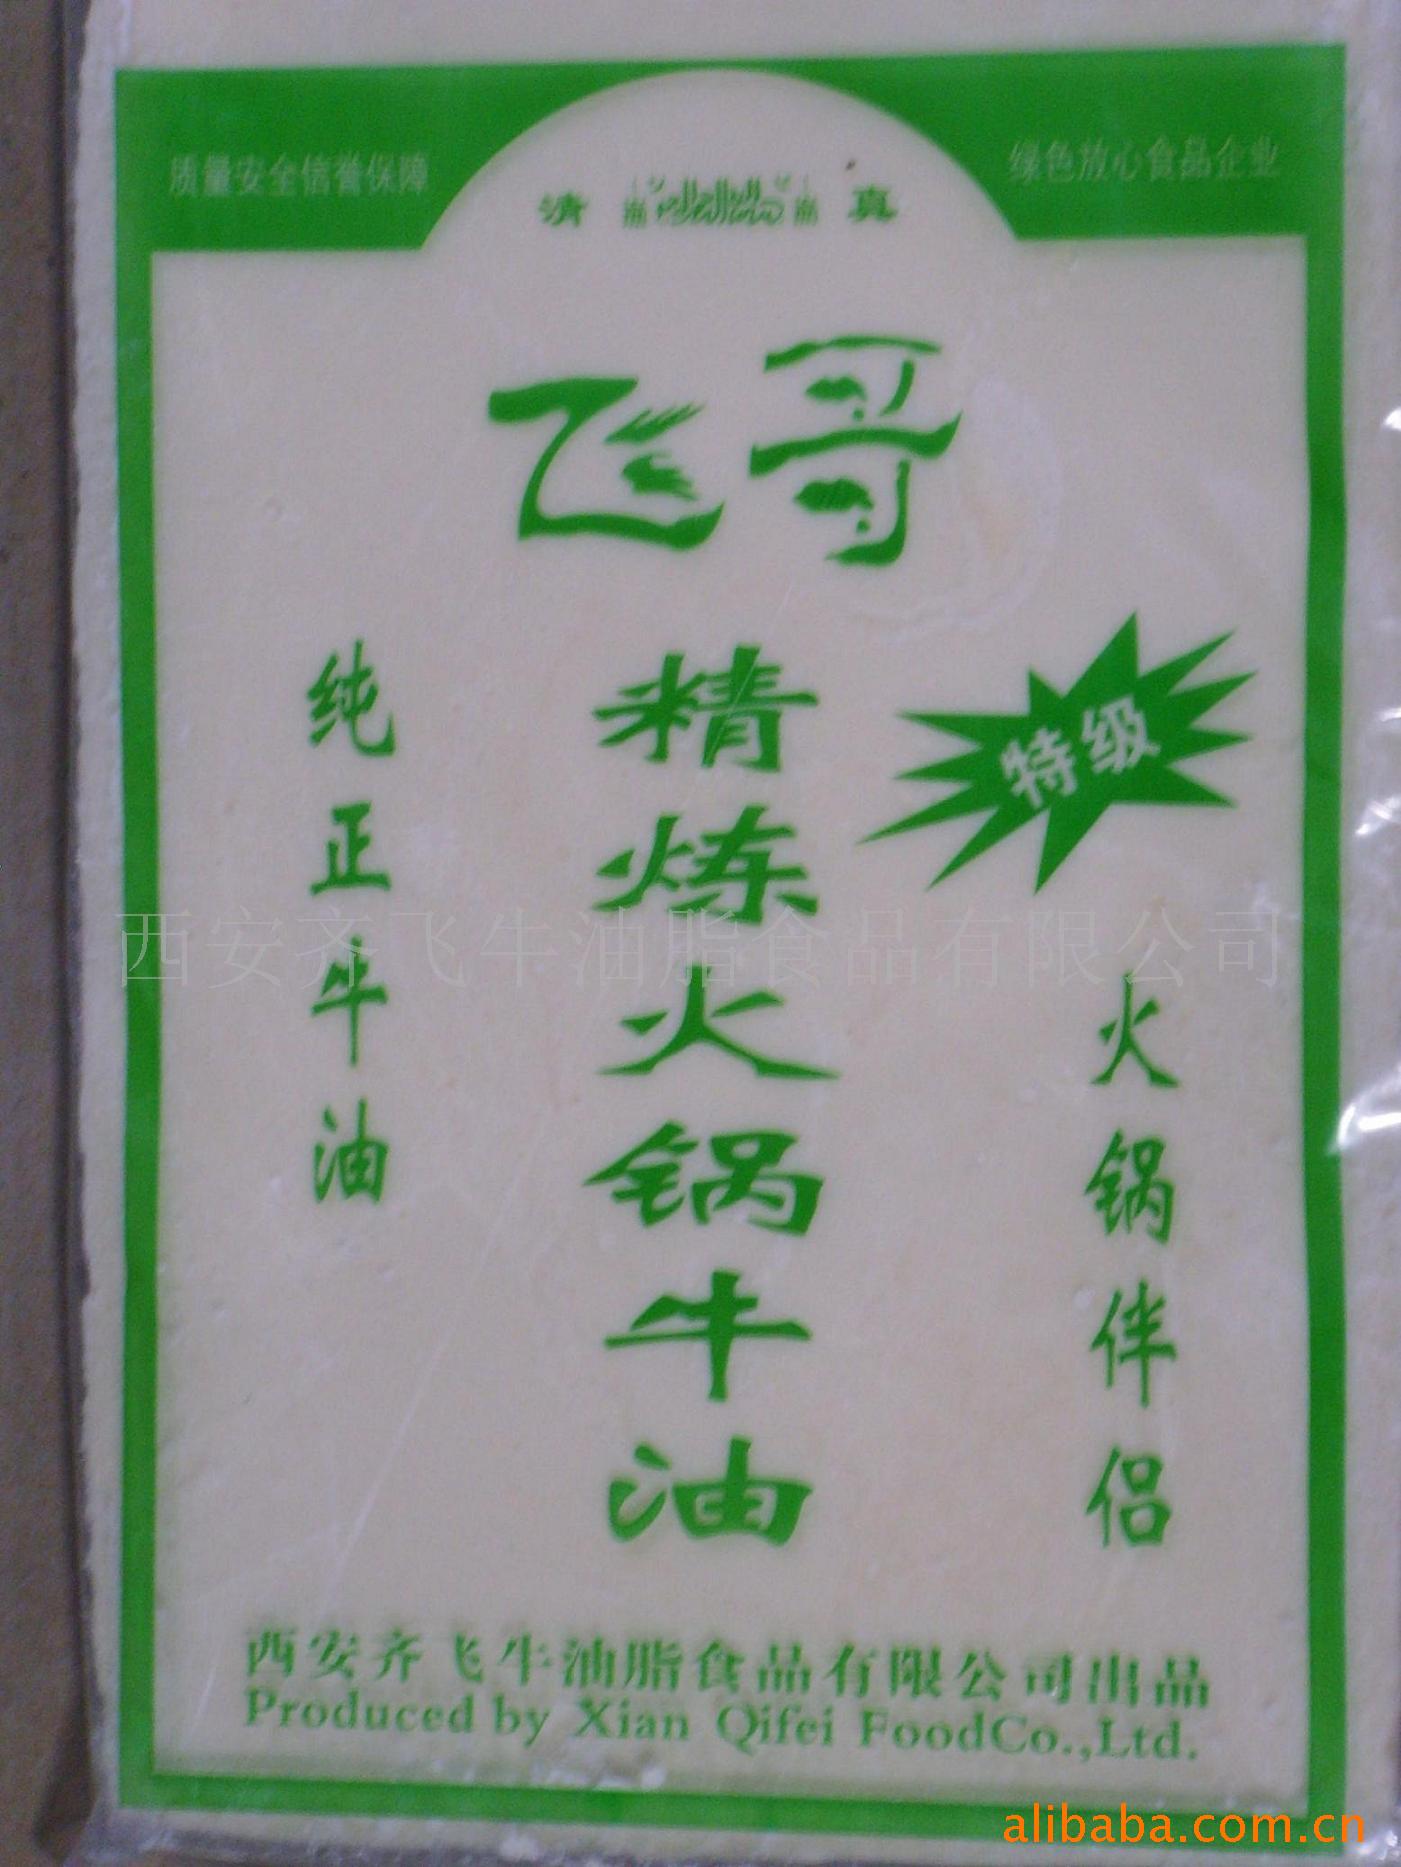 质量安全信誉保障
绿色放心食品企业
清真
飞哥
特级
纯正牛油
精炼火锅牛油
火锅伴侣
西安齐飞牛油脂食品有限公司
西安齐飞牛油脂食品有限公司出品
Produced by Xian Qifei FoodCo.,Ltd.
alibaba.com.cn